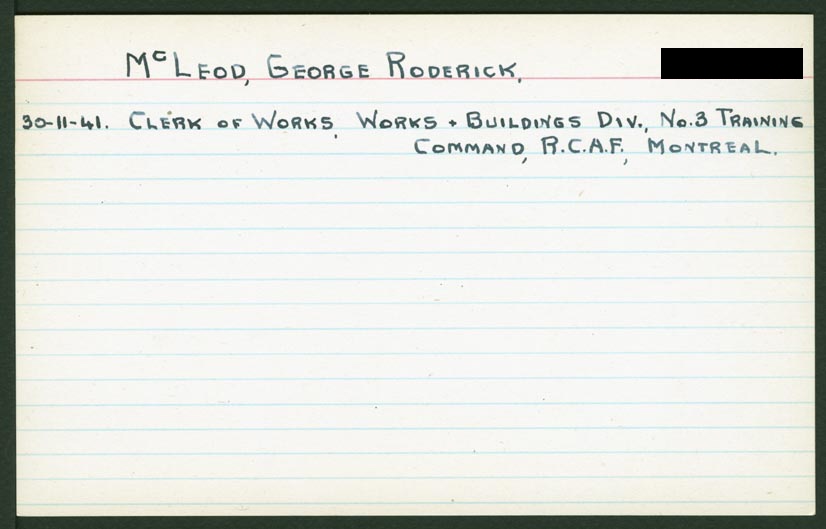 McLEOD, GEORGE RODERICK,
30-11-41. CLERK OF WORKS, WORKS + BUILDINGS DIV., No.3 TRAINING
COMMAND, R.C.A.F., MONTREAL.